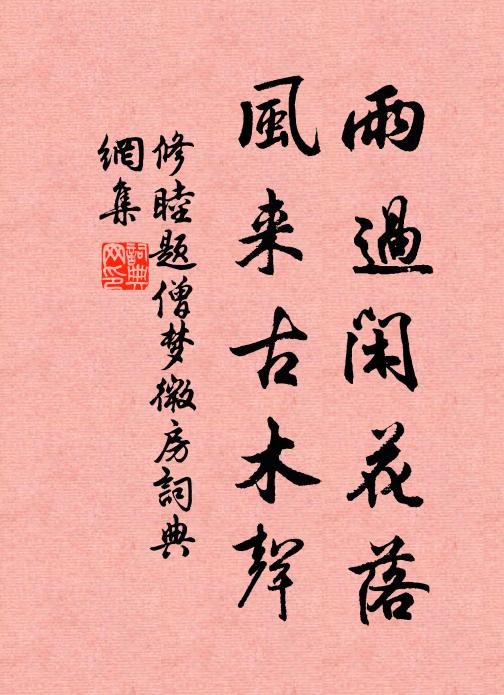 雨過闲花落
風来古木聲
修睦题僧梦微房詞典
網集
詞典
网印